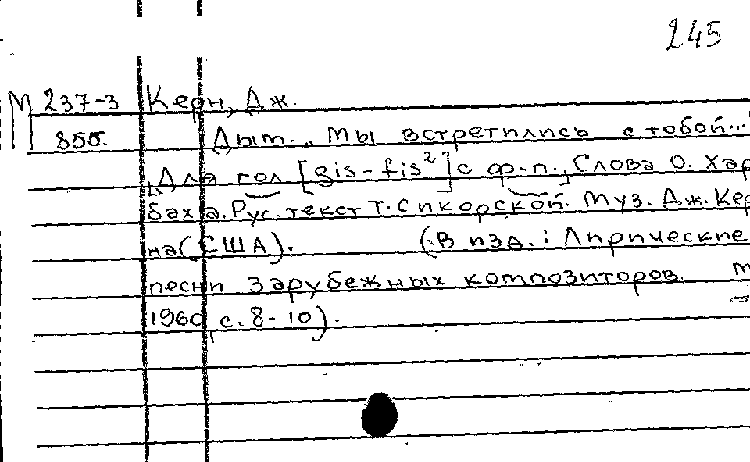 245
М 237-3 Керн, Дж.
855. Дым. „Мы встретились с тобой...
Для гол [gis-fis²] с ф.-п., Слова О. Хар
баха. Рус. текст Т. Сикорской. Муз. Дж. Кер
на (США). (В изд.: Лирические
песни зарубежных композиторов. М
1960, с. 8-10).